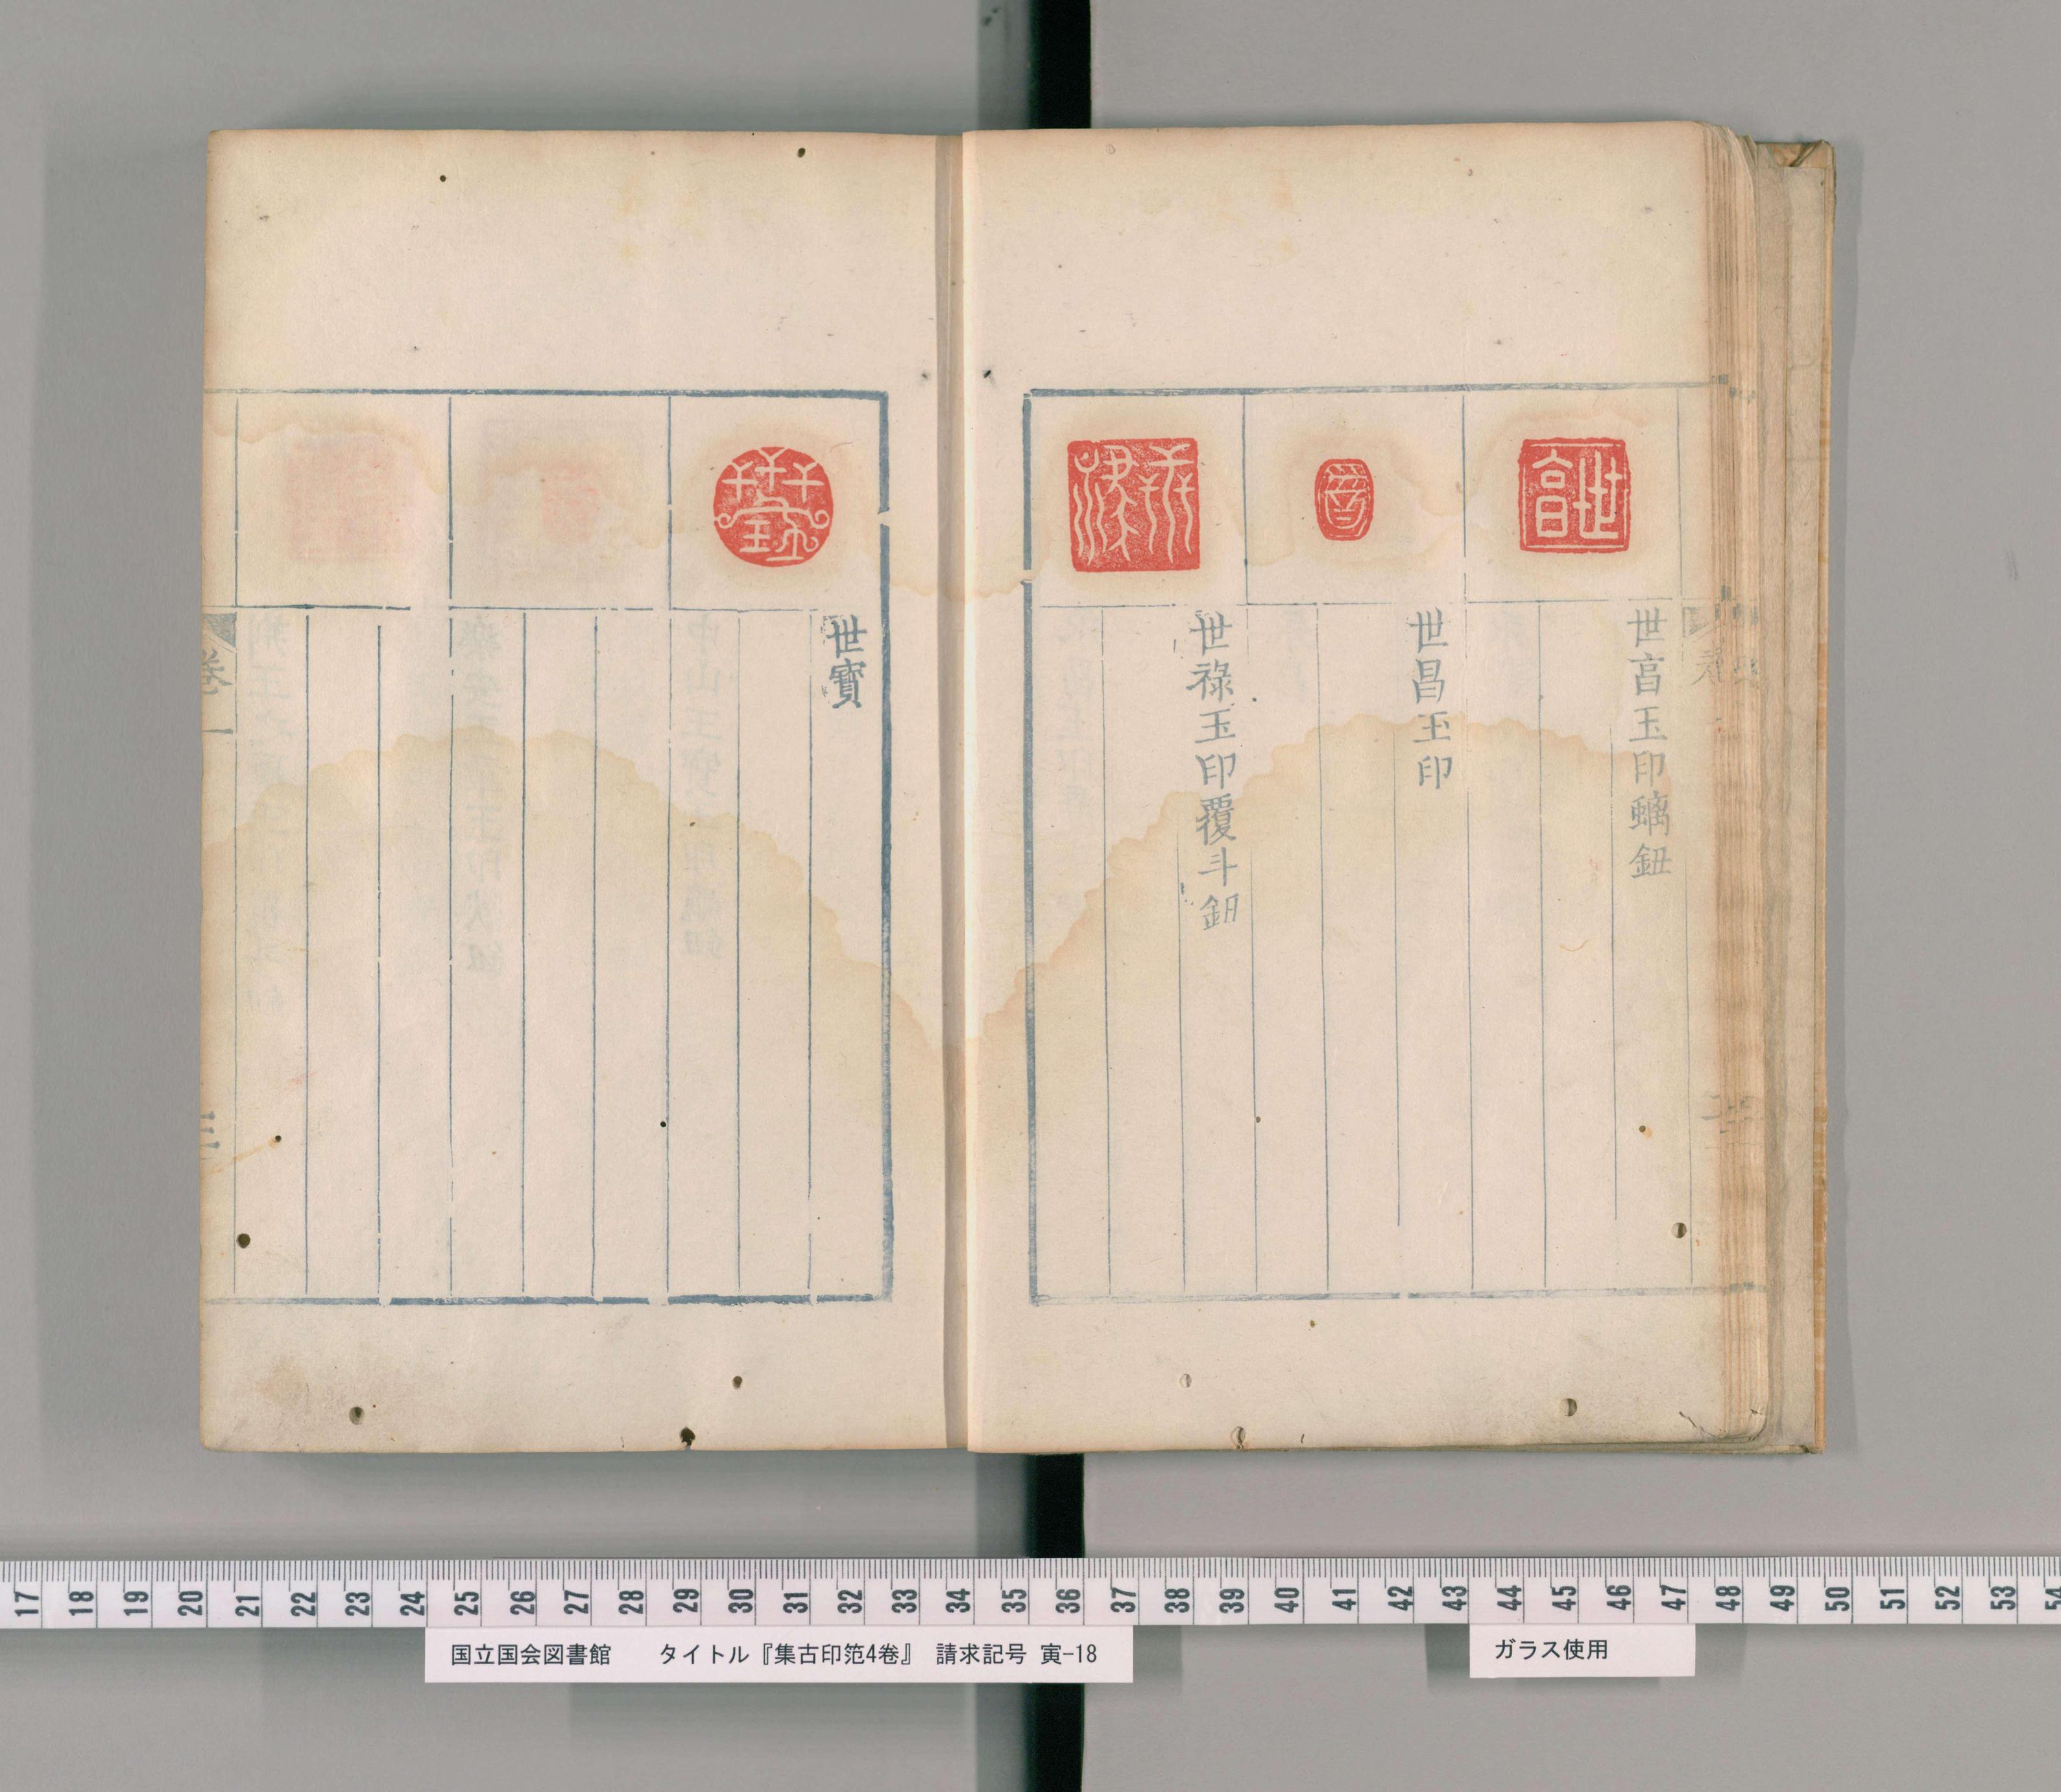 世亯玉印螭鈕
世昌玉印
世祿玉印覆斗鈕
世寳
卷一
三
17 18 19 20 21 22 23 24 25 26 27 28 29 30 31 32 33 34 35 36 37 38 39 40 41 42 43 44 45 46 47 48 49 50 51 52 53 54
国立国会図書館 タイトル『集古印笵4巻』 請求記号 寅-18
ガラス使用